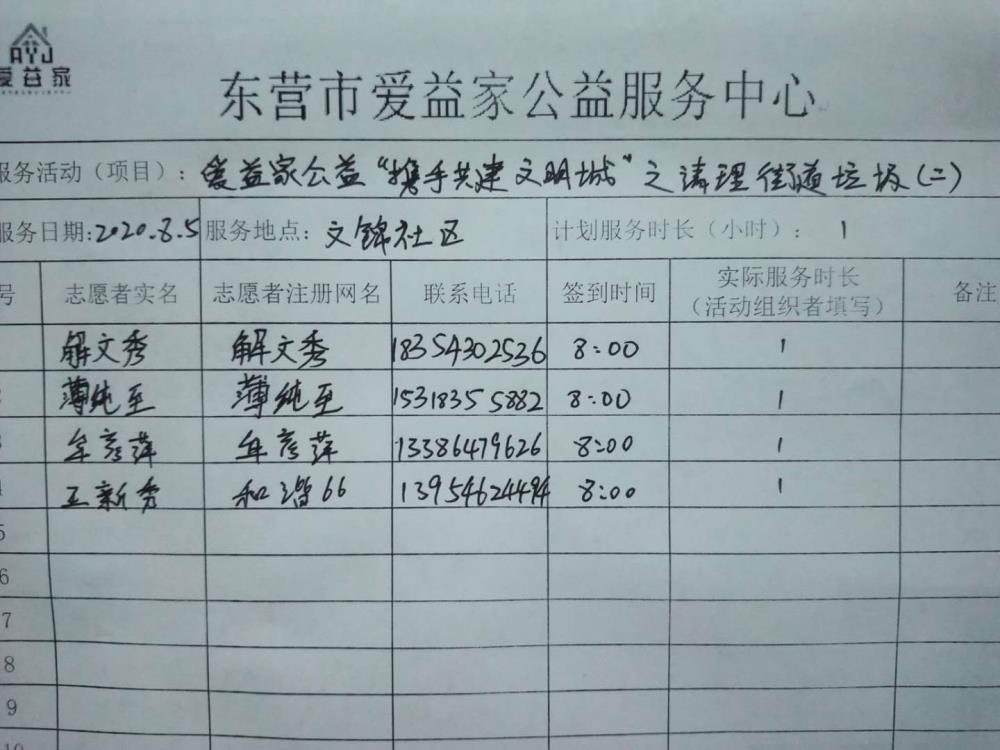 AYJ
爱益家
东营市爱益家公益服务中心
服务活动（项目）：爱益家公益“携手共建文明城”之清理街道垃圾(二)
服务日期:2020.8.5 服务地点：文锦社区 计划服务时长（小时）：1
号 志愿者实名 志愿者注册网名 联系电话 签到时间 实际服务时长（活动组织者填写） 备注
解文秀 解文秀 18354302536 8:00 1
薄纯至 薄纯至 15318355882 8:00 1
3 牟彦萍 牟彦萍 13386479626 8:00 1
4 王新秀 和谐66 13954624494 8:00 1
5
6
7
8
9
10